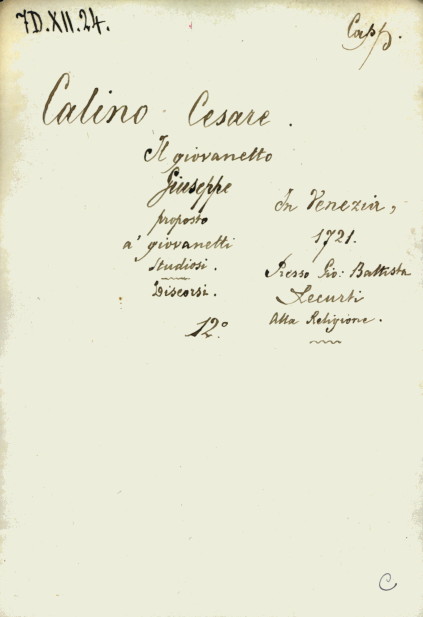 7D.XII.24.
Capp.
Calino Cesare.
Il giovanetto
Giuseppe
proposto
a' giovanetti
studiosi.
Discorsi.
12°
In Venezia,
1721.
Presso Gio: Battista
Recurti
Alla Religione.
C